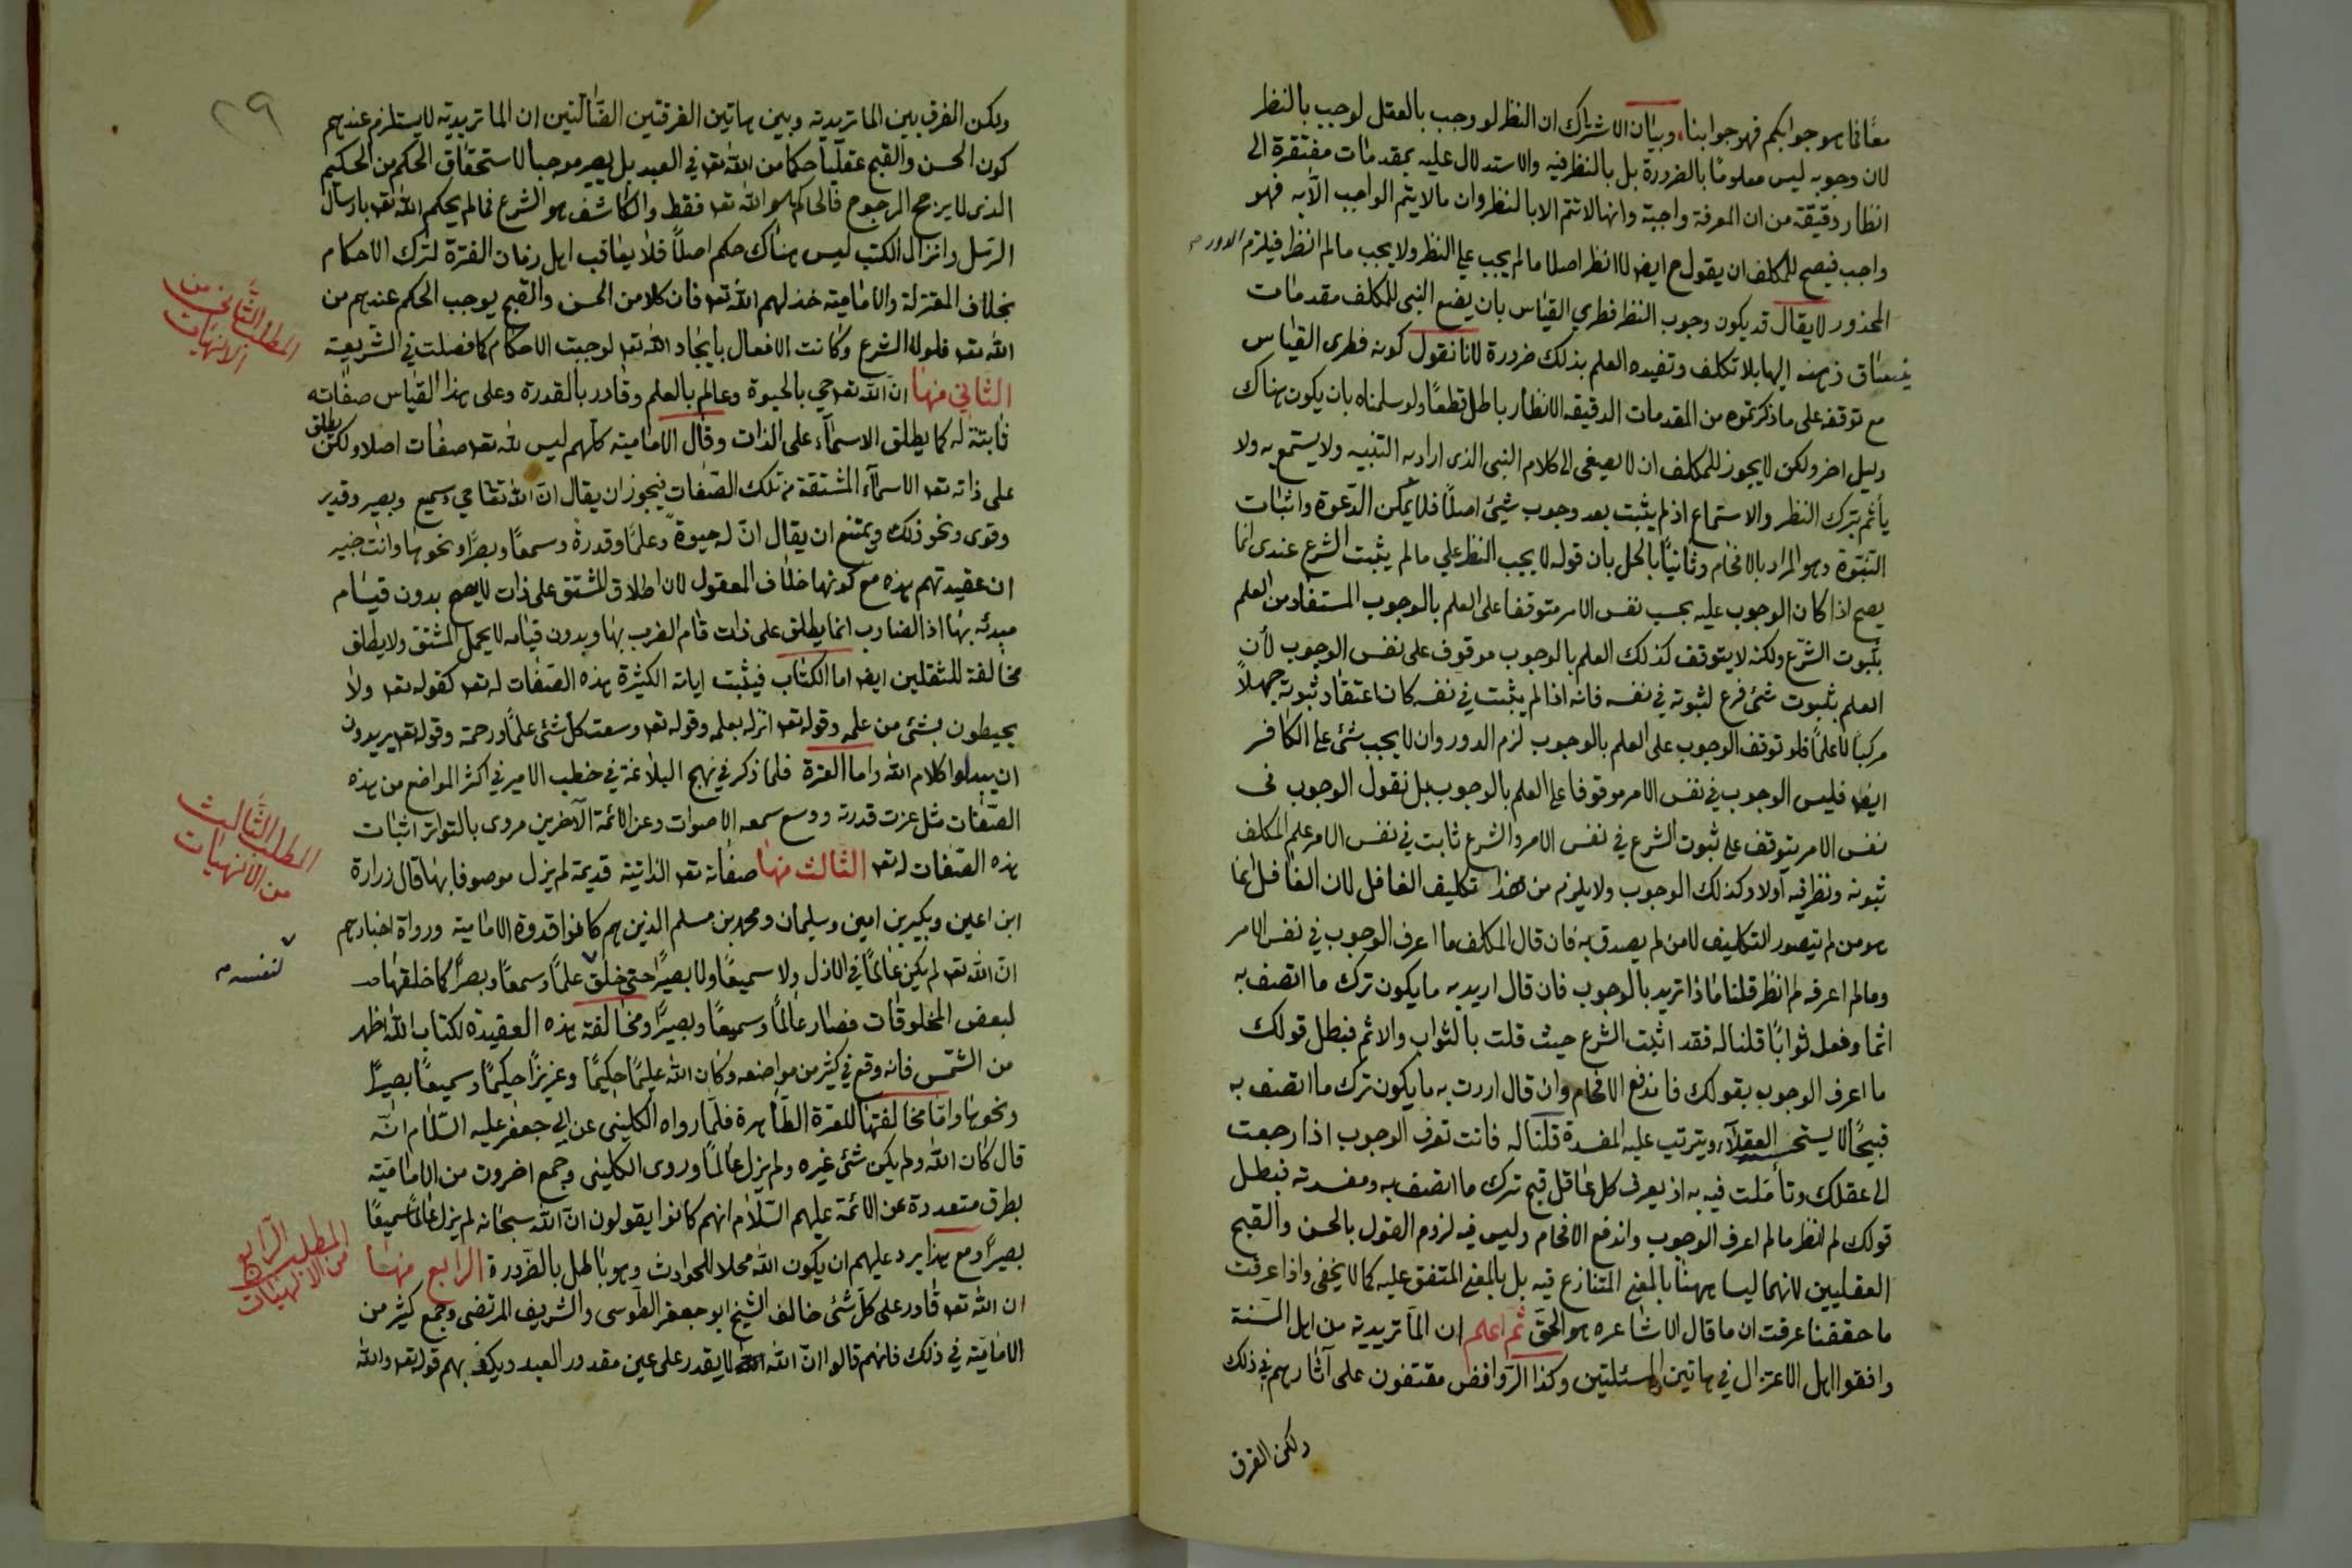 معًا فما هو جوابكم فهو جوابنا وبيان الاشتراك ان النظر لو وجب بالعقل لوجب بالنظر
لان وجوبه ليس معلومًا بالضرورة بل بالنظر فيه والاستدلال عليه بمقدمات مفتقرة الى
انظار دقيقة من ان المعرفة واجبة وانها لا تتم الا بالنظر وان ما لا يتم الواجب الا به فهو
واجب فيصح للمكلف ان يقول ح ايض لا انظر اصلا ما لم يجب علي النظر ولا يجب ما لم انظر فيلزم الدور
المحذور لا يقال قد يكون وجوب النظر فطري القياس بان يضع النبي للمكلف مقدمات
ينساق ذهنه اليها بلا تكلف وتفيده العلم بذلك ضرورة لانا نقول كونه فطري القياس
مع توقفه على ما ذكرتموه من المقدمات الدقيقه الانظار باطل قطعًا ولو سلمناه بان يكون هناك
دليل اخر ولكن لا يجوز للمكلف ان لا يصغى الى كلام النبي الذي اراد به التنبيه ولا يستمع به ولا
يأثم بترك النظر والاستماع اذ لم يثبت بعد وجوب شيئ اصلًا فلا يمكن الدّعوة واثبات
النّبّوة وهو المراد بالافحام وثانيًا بالحل بان قوله لا يجب النظر علي ما لم يثبت الشرع عندي انما
يصح اذا كان الوجوب عليه بحسب نفس الامر متوقفا على العلم بالوجوب المستفاد من العلم
بثبوت الشرع ولكنه لا يتوقف كذلك العلم بالوجوب موقوف على نفس الوجوب لأن
العلم بثبوت شئ فرع لثبوته في نفسه فانه اذا لم يثبت في نفسه كان اعتقاد ثبوته جهلًا
مركبًا لا علمًا فلو توقف الوجوب على العلم بالوجوب لزم الدور وان لا يجب شئ على الكافر
ايض فليس الوجوب في نفس الامر موقوفا على العلم بالوجوب بل نقول الوجوب في
نفس الامر يتوقف على ثبوت الشرع في نفس الامر والشرع ثابت في نفس الامر علم المكلف
ثبوته ونظر فيه أولا وكذلك الوجوب ولا يلزم من هذا تكليف الغافل لان الغافل انما
هو من لم يتصور التكليف لا من لم يصدق به فان قال المكلف ما اعرف الوجوب في نفس الامر
وما لم اعرفه لم انظر قلنا ماذا تريد بالوجوب فان قال اريد به ما يكون ترك ما اتصف به
اثما وفعله ثوابًا قلنا له فقد اثبت الشرع حيث قلت بالثواب والاثم فبطل قولك
ما اعرف الوجوب بقولك فاندفع الافحام وان قال اردت به ما يكون ترك ما اتصف به
قبيحًا لا يستحسنه العقلاء ويترتب عليه المفسدة قلنا له فانت تعرف الوجوب اذا رجعت
الى عقلك وتأملت فيه به اذ يعرف كل عاقل قبح ترك ما اتصف به ومفسدته فبطل
قولك لم انظر ما لم اعرف الوجوب واندفع الافحام وليس فيه لزوم القول بالحسن والقبح
العقليين لانهما ليسا ههنا بالمعنى المتنازع فيه بل بالمعنى المتفق عليه كما لا يخفى واذا عرفت
ما حققنا عرفت ان ما قال الاشاعره هو الحق ثم اعلم ان الماتريدية من اهل السنة
وافقوا اهل الاعتزال في هاتين المسئلتين وكذا الرّوافض مقتفون على آثارهم في ذلك
ولكن الفرق
٢٩
ولكن الفرق بين الماتريديه وبين هاتين الفرقتين الضّالّتين ان الماتريديه لا يستلزم عندهم
كون الحسن والقبح عقليًا حكما من الله تعه في العبد بل يصير موجبا لاستحقاق الحكم من الحكيم
الذي لا يرجح المرجوح فالحاكم هو الله تعه فقط والكاشف هو الشرع فما لم يحكم الله تعه بارسال
الرسل وانزال الكتب ليس هناك حكم اصلًا فلا يعاقب اهل زمان الفترة لترك الاحكام
بخلاف المعتزلة والاماميه خذلهم الله تعه فان كلا من الحسن والقبح يوجب الحكم عندهم من
الله تعه فلولا الشرع وكانت الافعال بايجاد الله تعه لوجبت الاحكام كما فصلت في الشّريعة
المطلب الثاني من
الالهيات
الثاني منها ان الله تعه حي بالحيوة وعالم بالعلم وقادر بالقدرة وعلى هذا القياس صفاته
ثابتة له كما يطلق الاسماء على الذات وقال الامامية كلهم ليس لله تعه صفات اصلا ولكن يطلق
على ذاته تعه الاسماء المشتقة من تلك الصّفات فيجوز ان يقال انّ الله تعا حي وسميع وبصير وقدير
وقوى ونحو ذلك ويمتنع ان يقال انّ له حيوةً وعلمًا وقدرةً وسمعًا وبصرًا ونحوها وانت خبير
ان عقيدتهم هذه مع كونها خلاف المعقول لان اطلاق المشتق على ذات لا يصح بدون قيام
مبدئه بها اذ الضارب انما يطلق على ذات قام الضرب بها وبدون قيامه لا يحمل المشتق ولا يطلق
مخالفة للثقلين ايض اما الكتاب فيثبت اياته الكثيرة هذه الصّفات له تعه كقوله تعه ولا
يحيطون بشئ من علمه وقوله تعه انزله بعلمه وقوله تعه وسعت كل شئ علمًا ورحمة وقوله تعه يريدون
ان يبدلوا كلام الله واما العترة فلما ذكر في نهج البلاغة في خطب الامير في اكثر المواضع من هذه
الصّفات مثل عزت قدرته ووسع سمعه الاصوات وعن الائمة الآخرين مروى بالتواتر اثبات
هذه الصّفات له تعه الثّالث منها صفاته تعه الذاتية قديمة لم يزل موصوفا بها قال زرارة
المطلب الثّالث
من الالهيات
ابن اعين وبكير بن اعين وسليمان ومحمد بن مسلم الذين هم كانوا قدوة الامامية ورواة اخبارهم
انّ الله تعه لم يكن عالمًا في الازل ولا سميعًا ولا بصيرًا حتى خلق علمًا وسمعًا وبصرًا كما خلقها
لنفسه
لبعض المخلوقات فصار عالمًا وسميعًا وبصيرًا ومخالفة هذه العقيدة لكتاب الله اظهر
من الشّمس فانه وقع في كثير من مواضعه وكان الله عليمًا حكيمًا وعزيزًا حكيمًا وسميعًا بصيرًا
ونحوها وامّا مخالفتها للعترة الطّاهرة فلمّا رواه الكليني عن ابي جعفر عليه السّلام انّه
قال كان الله ولم يكن شئ غيره ولم يزل عالمًا وروى الكليني وجمع اخرون من الاماميّة
بطرق متعددة عن الائمة عليهم السّلام انهم كانوا يقولون انّ الله سبحانه لم يزل عالمًا سميعًا
بصيرًا ومع هذا يرد عليهم ان يكون الله محلا للحوادث وهو باطل بالضّرورة الرابع منها
المطلب الرّابع
من الالهيات
ان الله تعه قادر على كلّ شئ خالف الشيخ ابو جعفر الطّوسى والشريف المرتضى وجمع كثير من
الاماميّة في ذلك فانهم قالوا انّ الله لا يقدر على عين مقدور العبد ويكفيهم قوله تعه والله